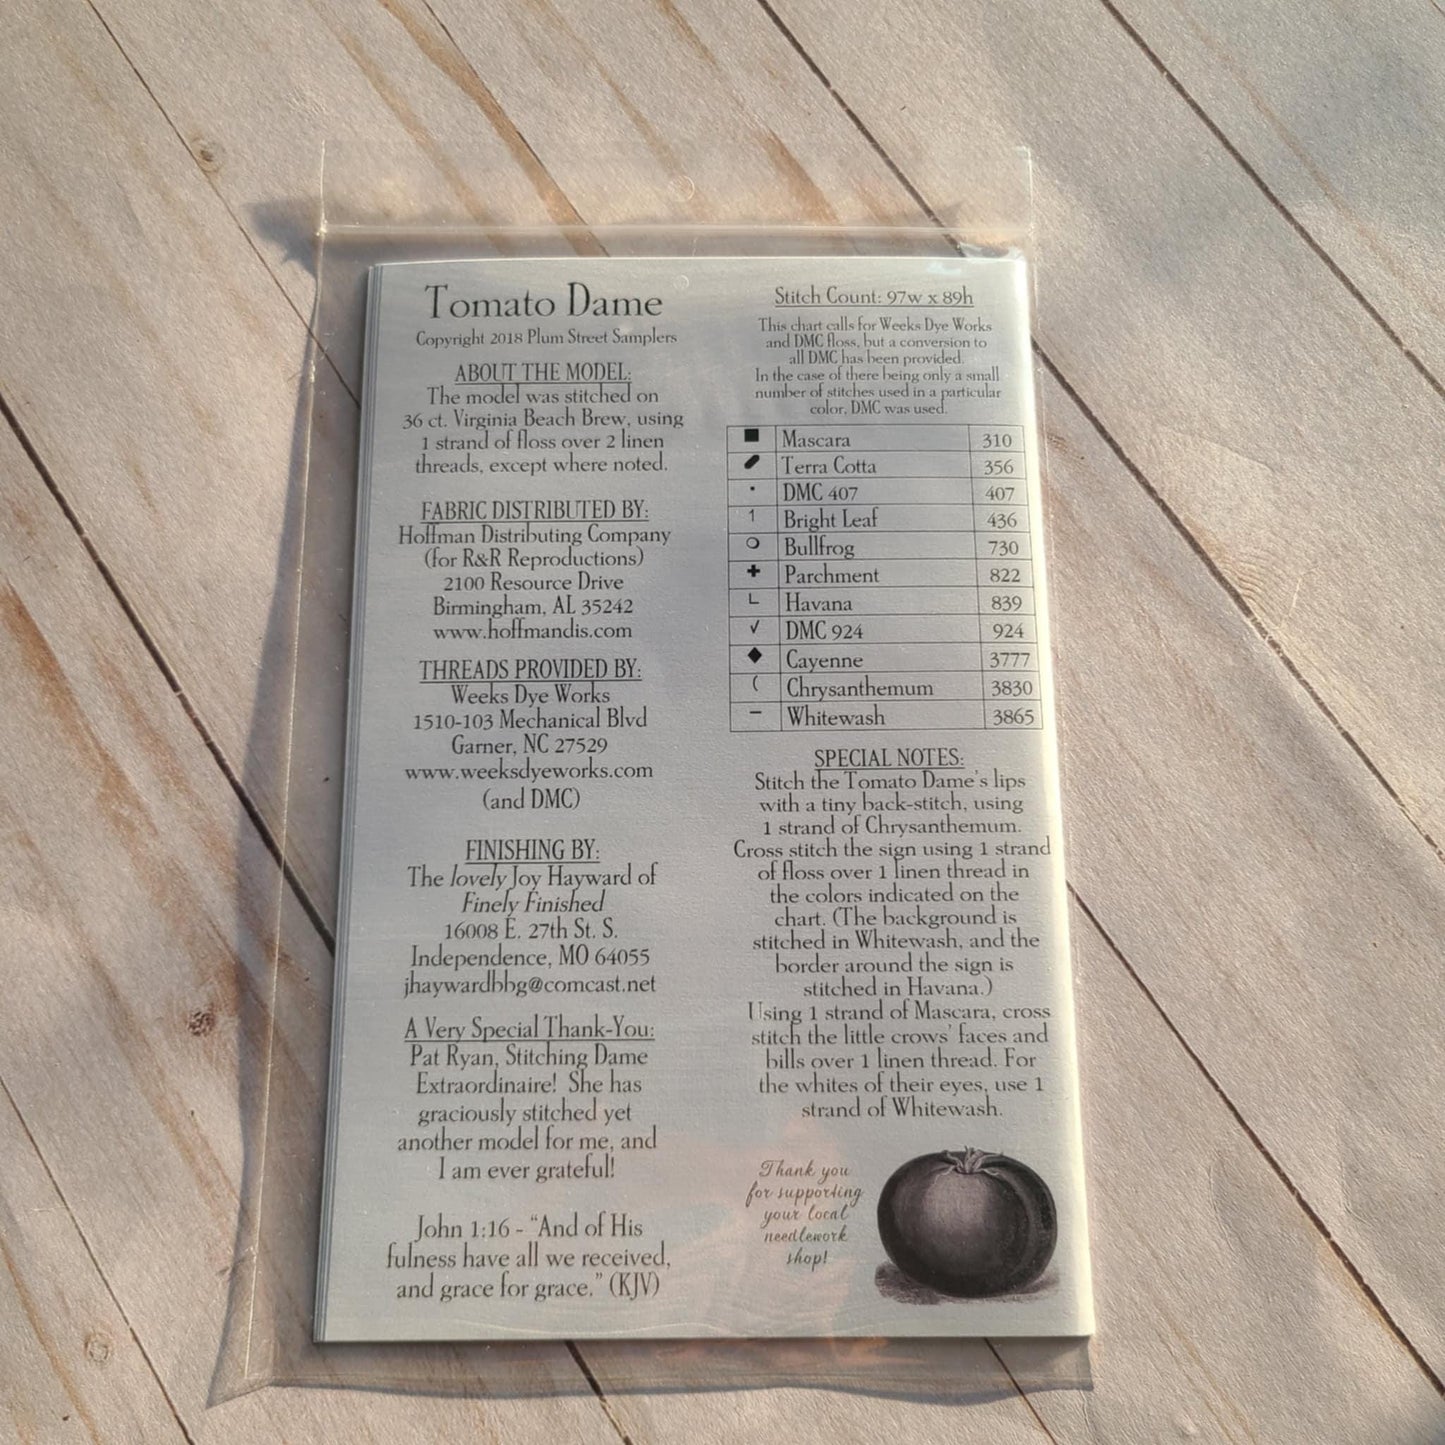 Tomato Dame
Copyright 2018 Plum Street Samplers
ABOUT THE MODEL:
The model was stitched on
36 ct. Virginia Beach Brew, using
1 strand of floss over 2 linen
threads, except where noted.
FABRIC DISTRIBUTED BY:
Hoffman Distributing Company
(for R&R Reproductions)
2100 Resource Drive
Birmingham, AL 35242
www.hoffmandis.com
THREADS PROVIDED BY:
Weeks Dye Works
1510-103 Mechanical Blvd
Garner, NC 27529
www.weeksdyeworks.com
(and DMC)
FINISHING BY:
The lovely Joy Hayward of
Finely Finished
16008 E. 27th St. S.
Independence, MO 64055
jhaywardbbg@comcast.net
A Very Special Thank-You:
Pat Ryan, Stitching Dame
Extraordinaire! She has
graciously stitched yet
another model for me, and
I am ever grateful!
John 1:16 - “And of His
fulness have all we received,
and grace for grace.” (KJV)
Stitch Count: 97w x 89h
This chart calls for Weeks Dye Works
and DMC floss, but a conversion to
all DMC has been provided.
In the case of there being only a small
number of stitches used in a particular
color, DMC was used.
Mascara 310
Terra Cotta 356
DMC 407 407
Bright Leaf 436
Bullfrog 730
Parchment 822
Havana 839
DMC 924 924
Cayenne 3777
Chrysanthemum 3830
Whitewash 3865
SPECIAL NOTES:
Stitch the Tomato Dame's lips
with a tiny back-stitch, using
1 strand of Chrysanthemum.
Cross stitch the sign using 1 strand
of floss over 1 linen thread in
the colors indicated on the
chart. (The background is
stitched in Whitewash, and the
border around the sign is
stitched in Havana.)
Using 1 strand of Mascara, cross
stitch the little crows' faces and
bills over 1 linen thread. For
the whites of their eyes, use 1
strand of Whitewash.
Thank you
for supporting
your local
needlework
shop!